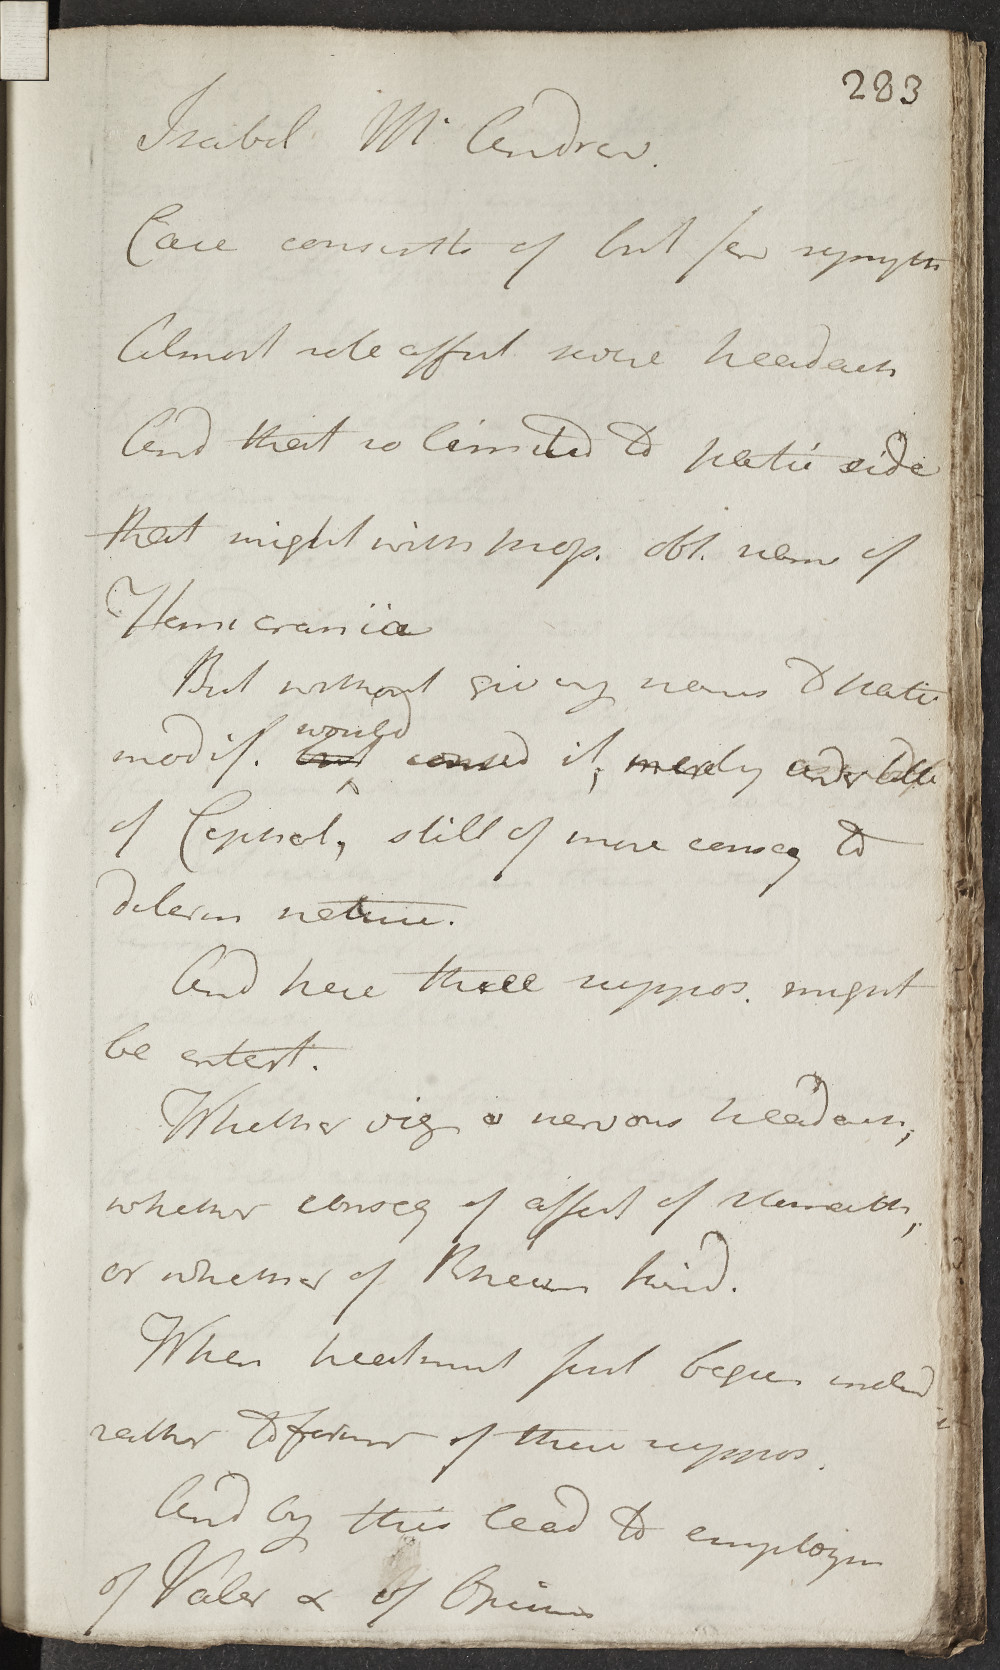 283
Isabel Mc Andrew.
Case consists of but few sympts
Almost sole affect severe headach
And that so limited to partic side
that might with prop. obt. name of
Hemicrania
But without giving names to partic
modif. would
but consid it, merely under title
of Cephal, still of more conseq to
determ nature.
And here three suppos. might
be entert.
Whether vig or nervous headach;
whether conseq of affect of stomach;
or whether of Rheum kind.
When treatment first begun inclind
rather to former of these suppos.
And by this lead to employm
of Valer & of Opium